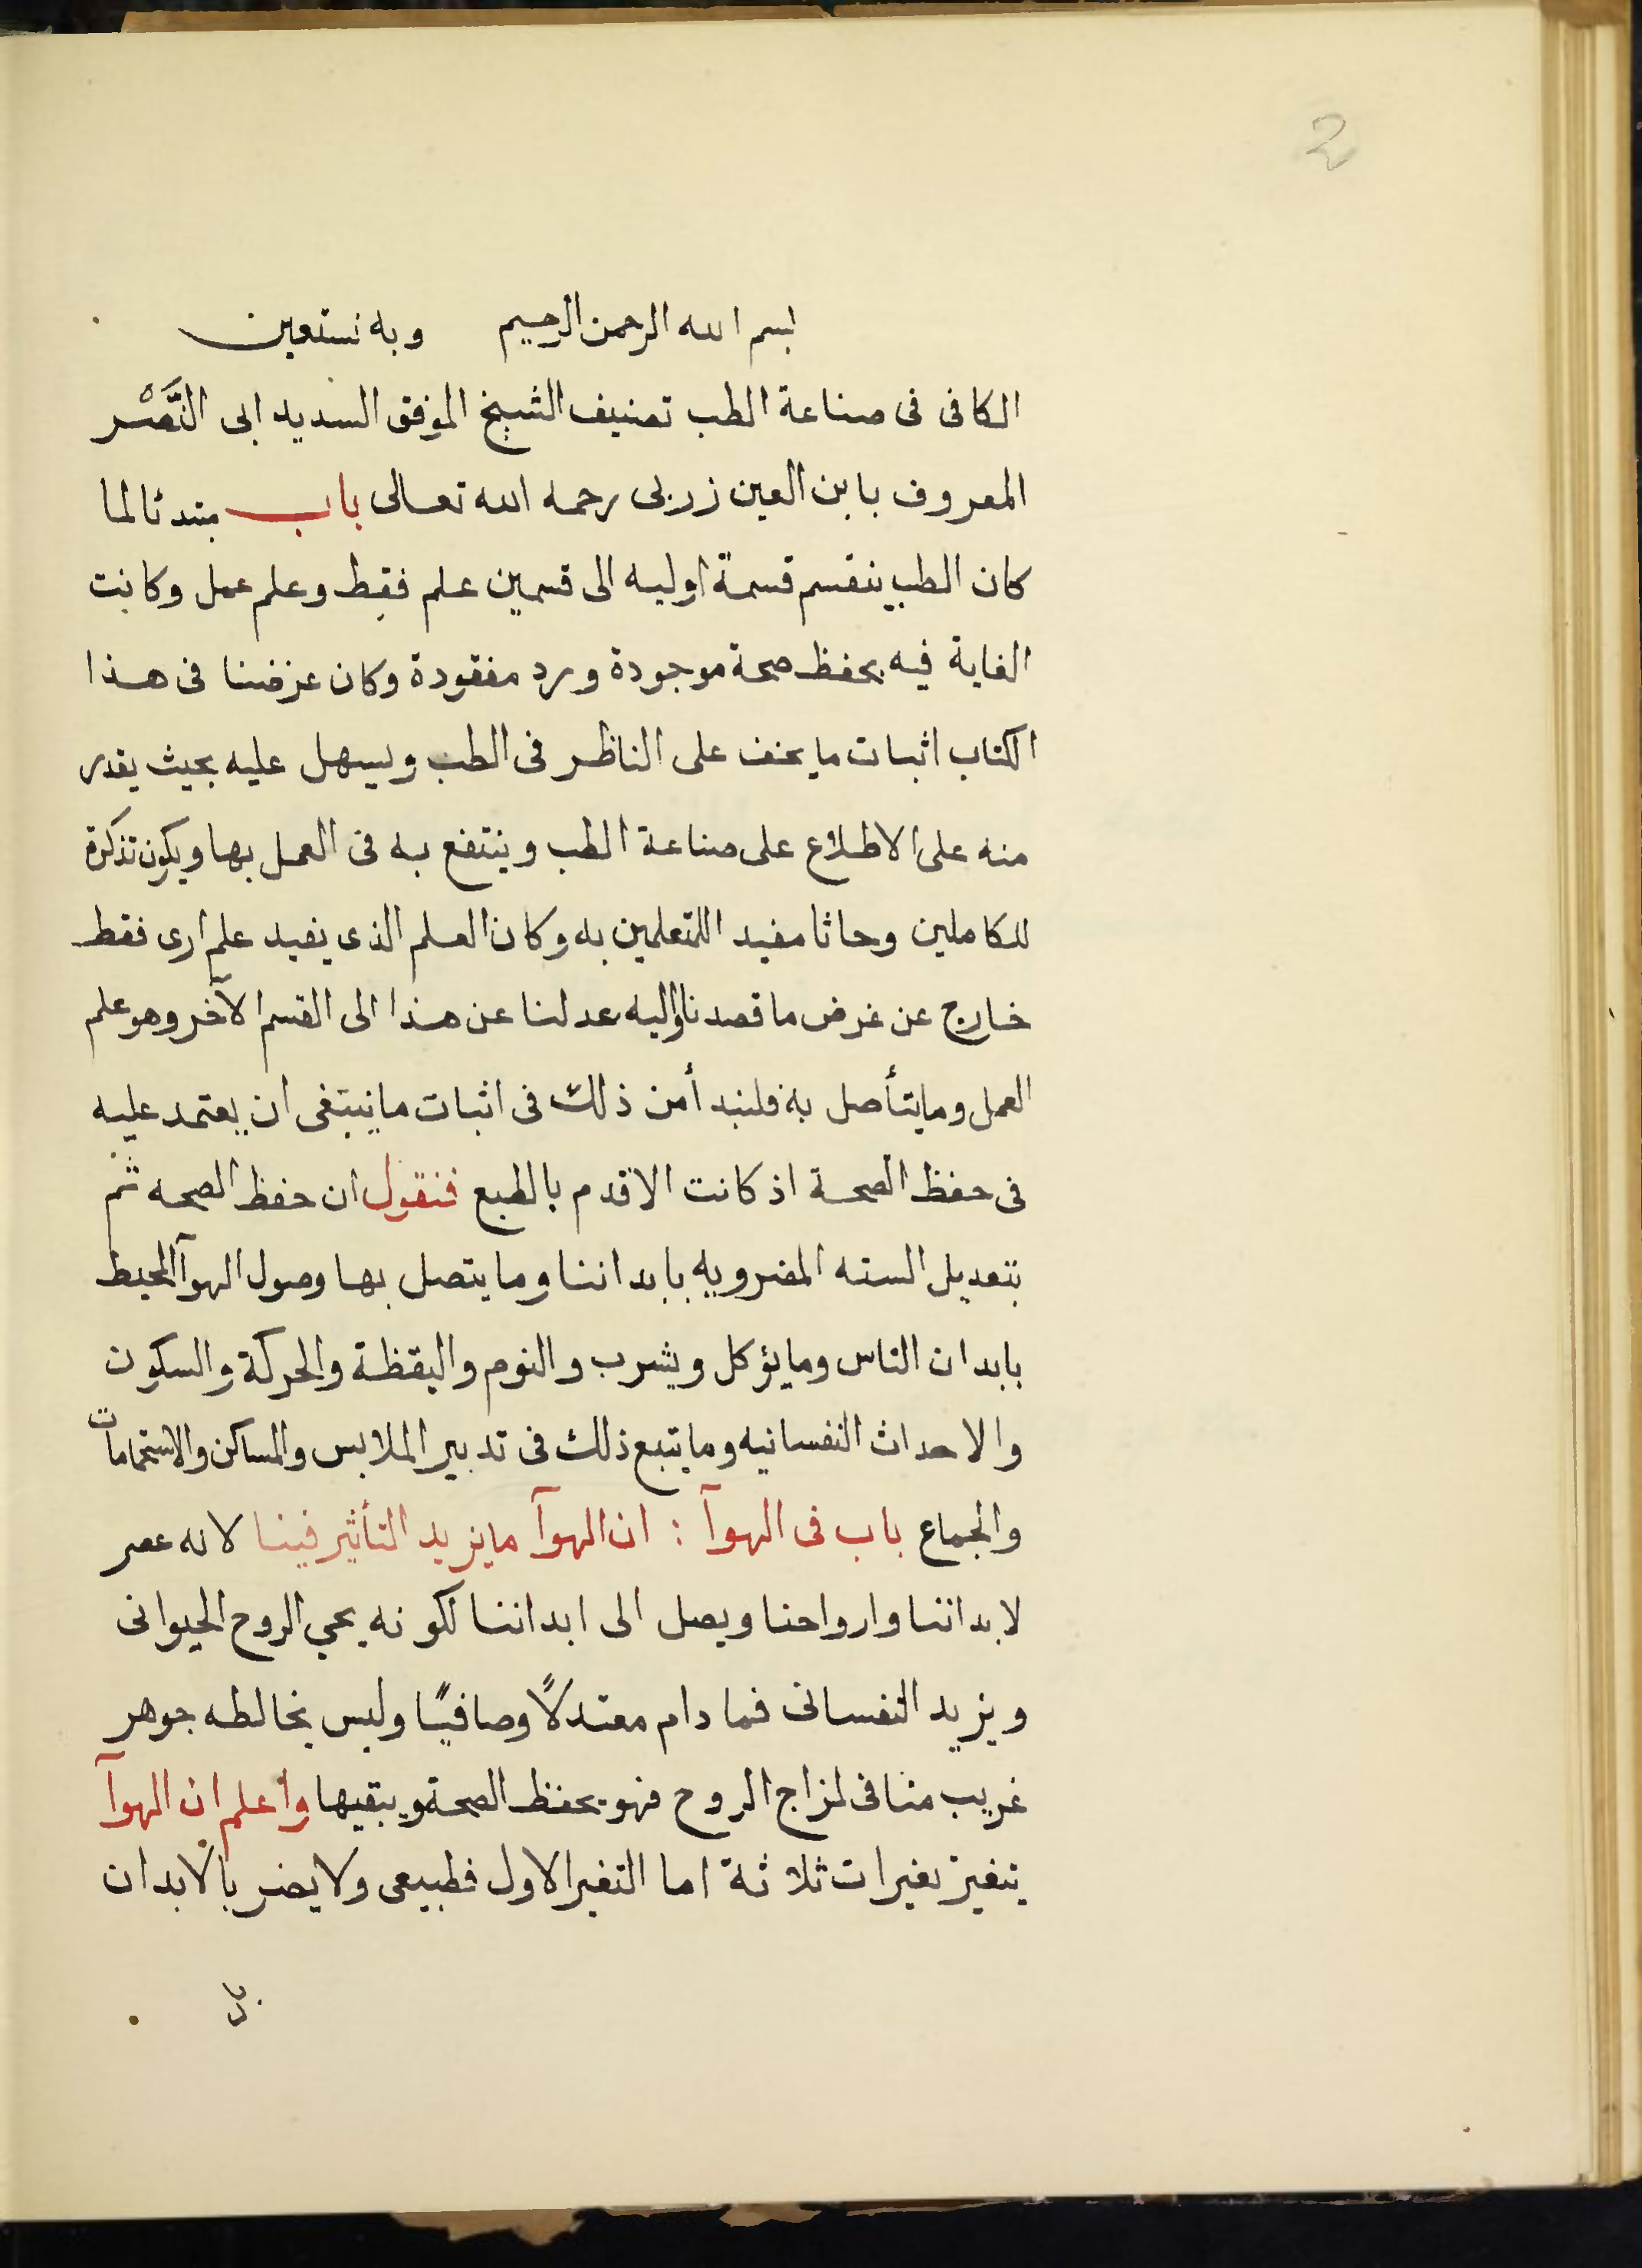 2
بسم الله الرحمن الرحيم وبه نستعين
الكافى فى صناعة الطب تصنيف الشيخ الموفق السديد ابى النَّصْر
المعروف بابن العين زربى رحمه الله تعالى باب مبتدئا لما
كان الطب ينقسم قسمة اوليه الى قسمين علم فقط وعلم عمل وكانت
الغاية فيه بحفظ صحة موجودة ورد مفقودة وكان غرضنا فى هذا
الكتاب اثبات ما يخف على الناظر فى الطب ويسهل عليه بحيث يقدر
منه على الاطلاع على صناعة الطب وينتفع به فى العمل بها ويكون تذكرة
للكاملين وحاثا مفيد اللمتعلمين به وكان العلم الذى يفيد علم ارى فقط
خارج عن غرض ما قصدنا واليه عدلنا عن هذا الى القسم الآخر وهو علم
العمل وما يتأصل به فلنبدأ من ذلك فى اثبات ما ينبغى ان يعتمد عليه
فى حفظ الصحة اذ كانت الاقدم بالطبع فنقول ان حفظ الصحه ثم
بتعديل السته المضرويه بابداننا وما يتصل بها وصول الهوآ المحيط
بابدان الناس وما يؤكل ويشرب والنوم واليقظة والحركة والسكون
والاحداث النفسانيه وما يتبع ذلك فى تدبير الملابس والمساكن والاستحمامات
والجماع باب فى الهوآ : ان الهوآ ما يزيد التأثير فينا لانه عصر
لابداننا وارواحنا ويصل الى ابداننا لكونه يحي الروح الحيوانى
ويزيد النفسانى فما دام معتدلاً وصافيًا وليس يخالطه جوهر
غريب منافى لمزاج الروح فهو يحفظ الصحة ويبقيها واعلم ان الهوآ
يتغير تغيرات ثلاثة اما التغير الاول فطبيعى ولا يضر بالابدان